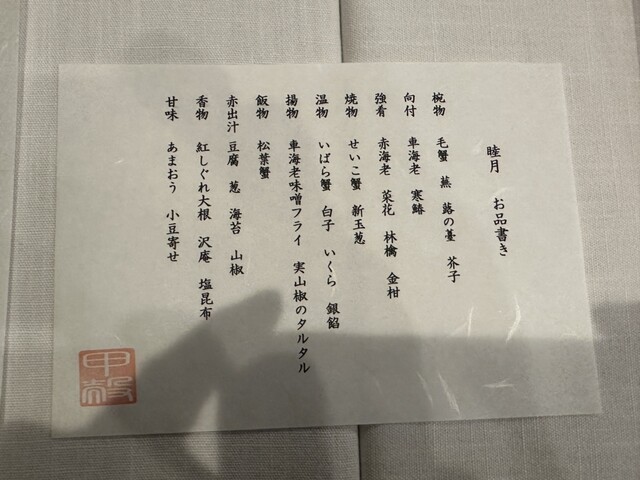 睦月 お品書き
椀物 毛蟹 蕪 蕗の薹 芥子
向付 車海老 寒鰆
強肴 赤海老 菜花 林檎 金柑
焼物 せいこ蟹 新玉葱
温物 いばら蟹 白子 いくら 銀餡
揚物 車海老味噌フライ 実山椒のタルタル
飯物 松葉蟹
赤出汁 豆腐 葱 海苔 山椒
香物 紅しぐれ大根 沢庵 塩昆布
甘味 あまおう 小豆寄せ
甲殻